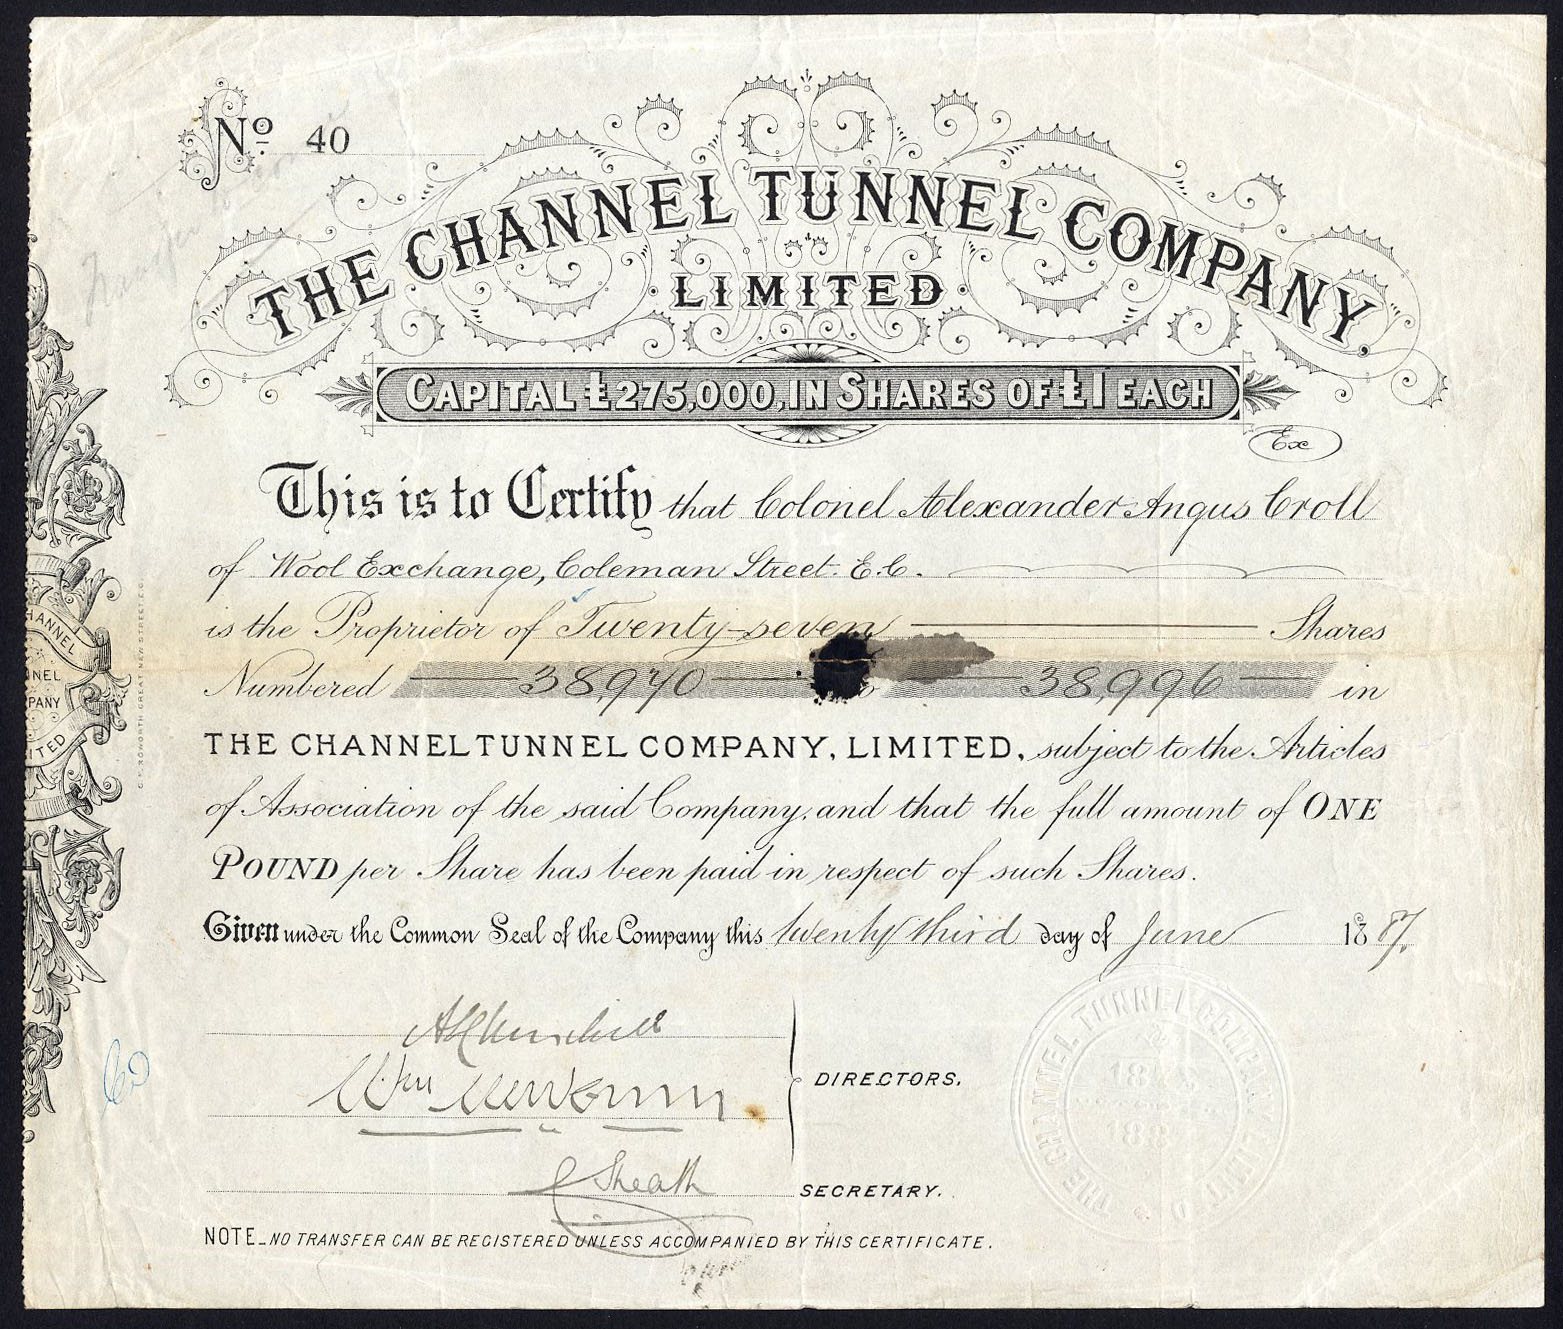 No. 40
THE CHANNEL TUNNEL COMPANY,
LIMITED
CAPITAL £275,000, IN SHARES OF £1 EACH
Ex
This is to Certify that Colonel Alexander Angus Croll
of Wool Exchange, Coleman Street. E.C.
is the Proprietor of Twenty-seven Shares
Numbered 38,970 38,996 in
THE CHANNEL TUNNEL COMPANY, LIMITED, subject to the Articles
of Association of the said Company, and that the full amount of ONE
POUND per Share has been paid in respect of such Shares.
Given under the Common Seal of the Company this twenty third day of June 1887.
DIRECTORS.
SECRETARY.
NOTE_NO TRANSFER CAN BE REGISTERED UNLESS ACCOMPANIED BY THIS CERTIFICATE.
THE CHANNEL TUNNEL COMPANY LIMITED
HANNEL
NEL
PANY
ITED